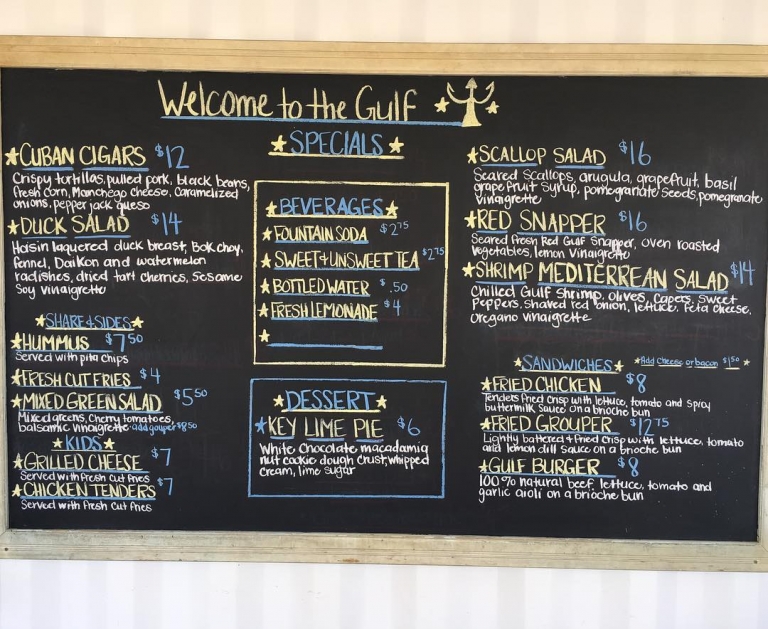 Welcome to the Gulf
SPECIALS
CUBAN CIGARS $12
Crispy tortillas, pulled pork, black beans,
fresh corn, Manchego cheese, caramelized
onions, pepper jack queso
DUCK SALAD $14
Hoisin laquered duck breast, bok choy,
fennel, Daikon and watermelon
radishes, dried tart cherries, Sesame
Soy vinaigrette
SHARE & SIDES
HUMMUS $7.50
Served with pita chips
FRESH CUT FRIES $4
MIXED GREEN SALAD $5.50
Mixed greens, Cherry tomatoes,
balsamic vinaigrette · add grouper $8.50
KIDS
GRILLED CHEESE $7
Served with Fresh Cut fries
CHICKEN TENDERS $7
Served with Fresh Cut fries
BEVERAGES
FOUNTAIN SODA $2.75
SWEET & UNSWEET TEA $2.75
BOTTLED WATER $.50
FRESH LEMONADE $4
DESSERT
KEY LIME PIE $6
White Chocolate macadamia
nut cookie dough crust, whipped
cream, lime sugar
SCALLOP SALAD $16
Seared Scallops, arugula, grapefruit, basil
grapefruit syrup, pomegranate seeds, pomegranate
vinaigrette
RED SNAPPER $16
Seared fresh Red Gulf Snapper, oven roasted
vegetables, lemon vinaigrette
SHRIMP MEDITERREAN SALAD $14
Chilled Gulf Shrimp, olives, capers, sweet
peppers, shaved red onion, lettuce, feta cheese,
Oregano vinaigrette
SANDWICHES Add Cheese or bacon $1.50
FRIED CHICKEN $8
Tenders fried Crisp with lettuce, tomato and spicy
buttermilk sauce on a brioche bun
FRIED GROUPER $12.75
Lightly battered & fried Crisp with lettuce, tomato
and lemon dill sauce on a brioche bun
GULF BURGER $8
100% natural beef, lettuce, tomato and
garlic aioli on a brioche bun